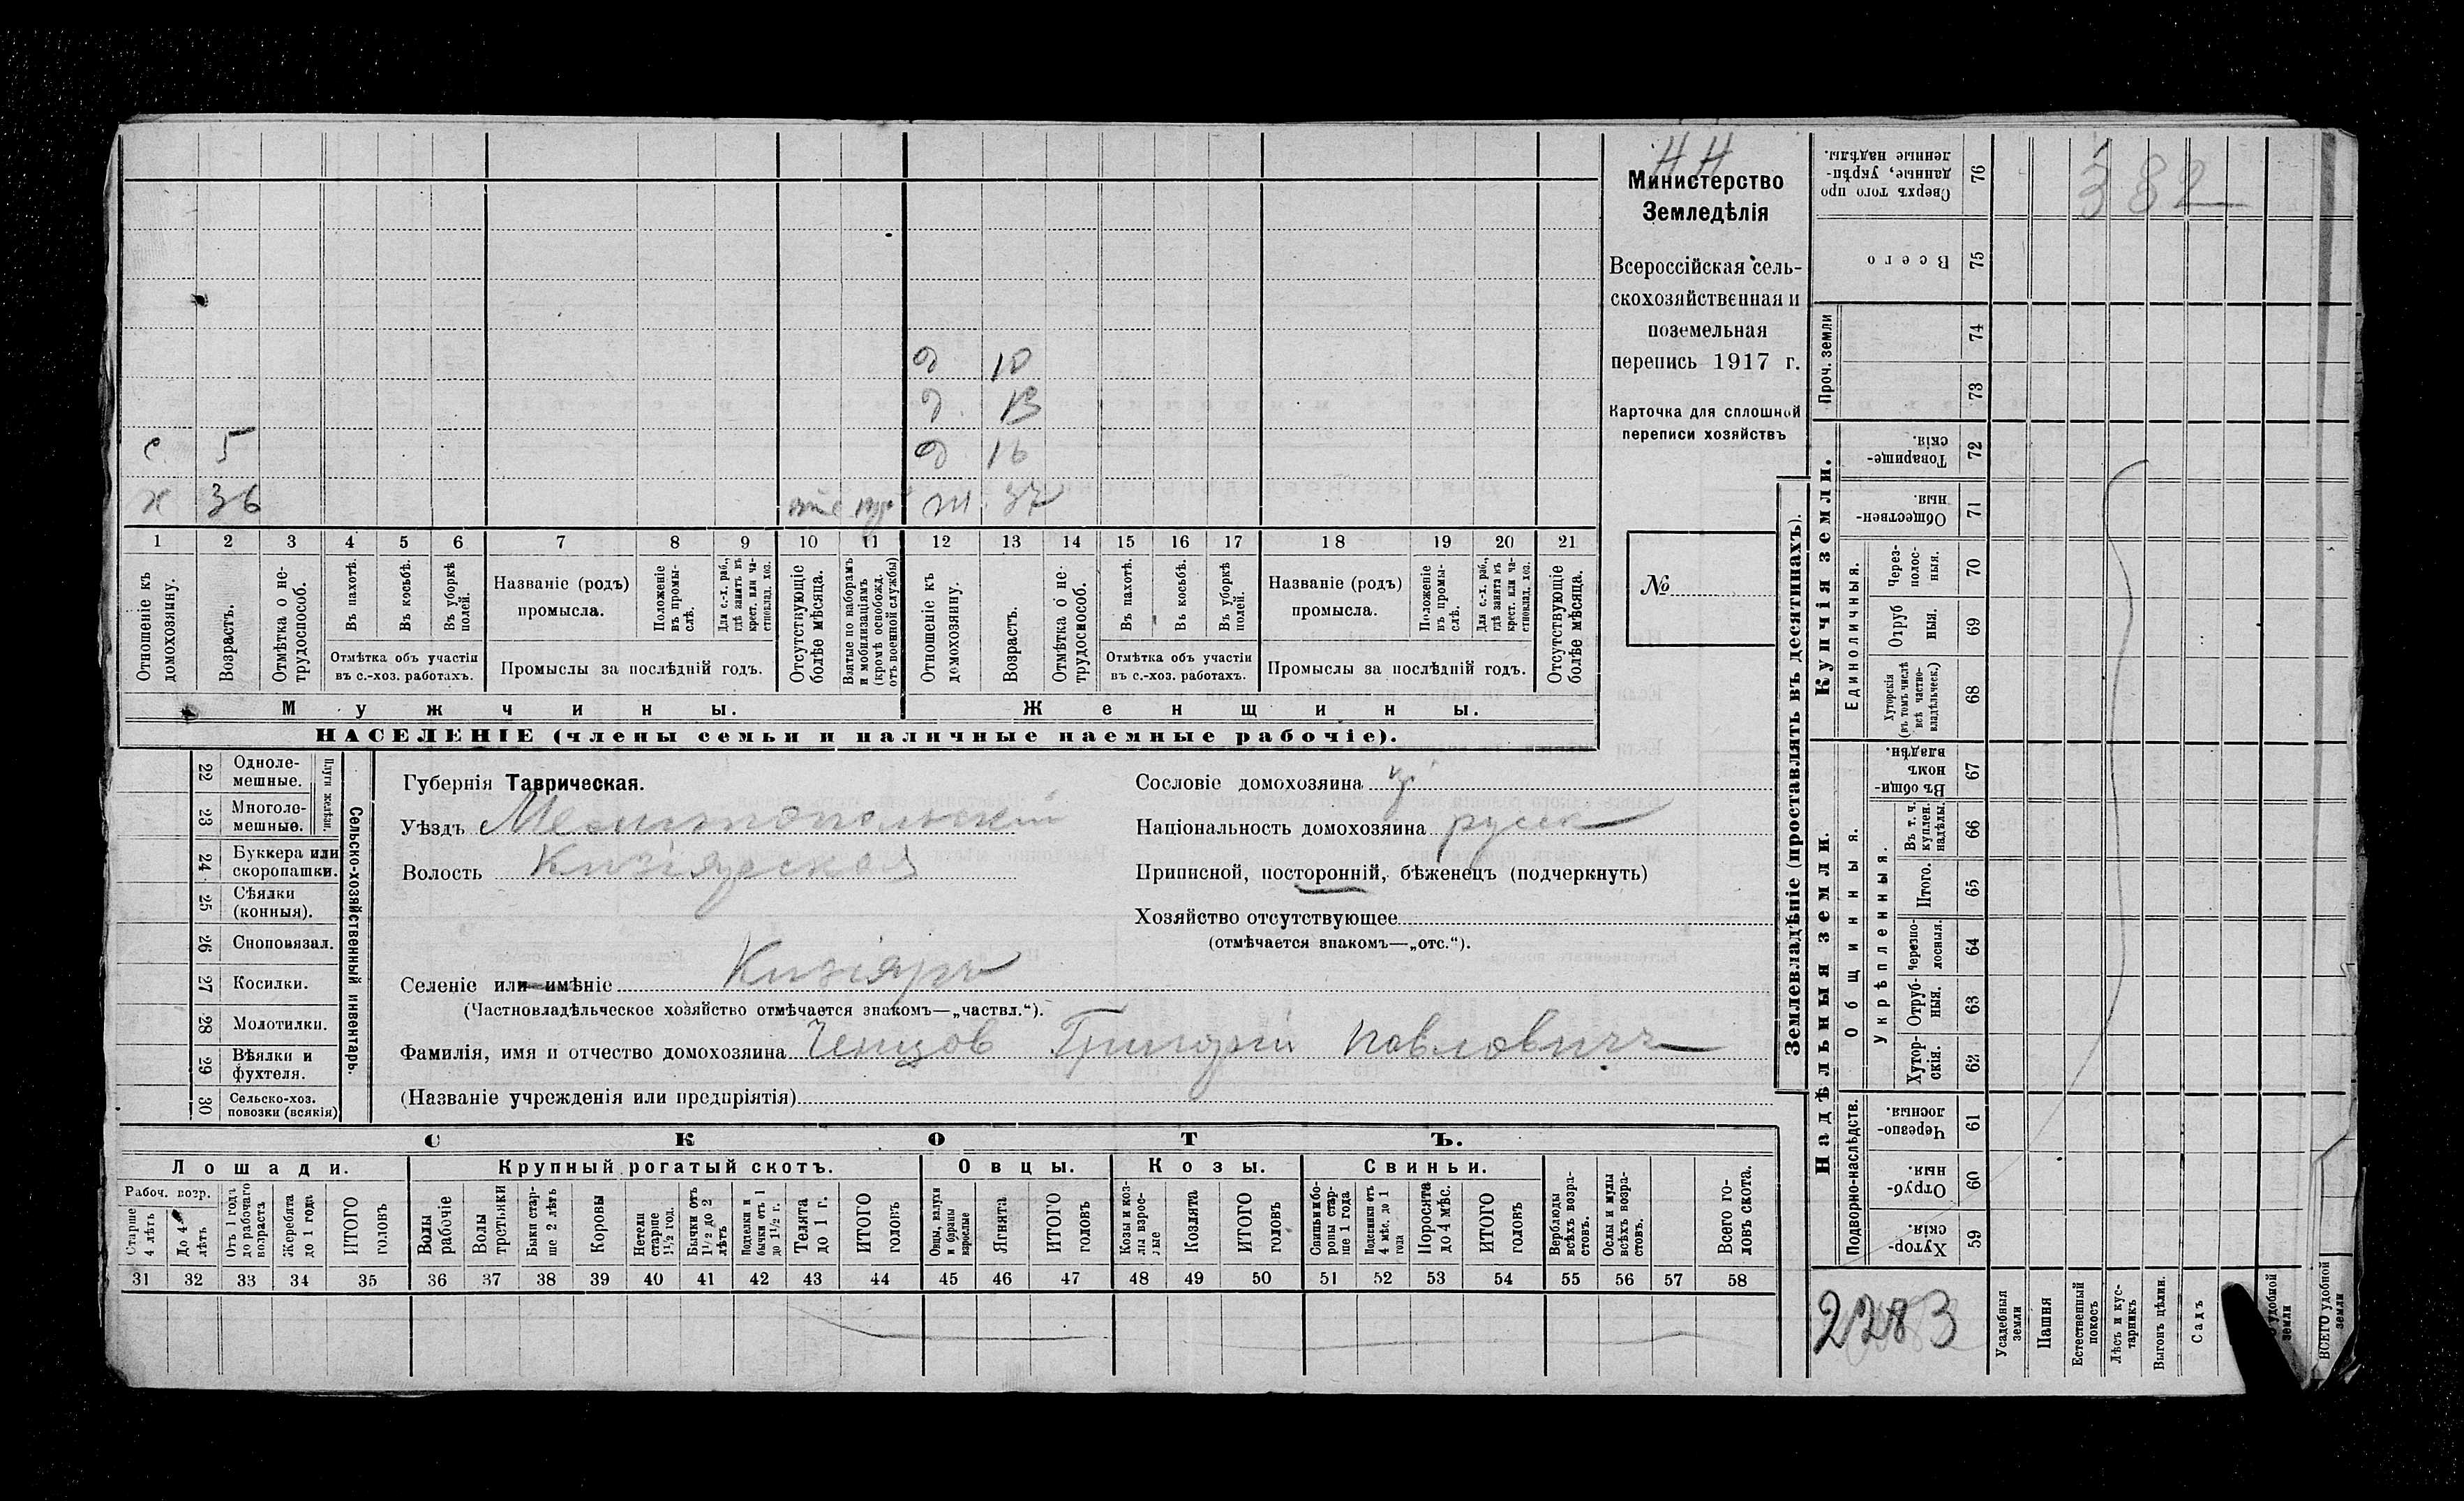 НН
Министерство
Земледѣлія
Всероссійская сель-
скохозяйственная и
поземельная
перепись 1917 г.
Карточка для сплошной
переписи хозяйствъ
№
д 10
д. 13
с. 5 д 16
х 36 ж 37
1 2 3 4 5 6 7 8 9 10 11 12 13 14 15 16 17 18 19 20 21
Отношеніе къ домохозяину.
Возрастъ.
Отмѣтка о не-трудоспособ.
Въ пахотѣ.
Въ косьбѣ.
Въ уборкѣ полей.
Отмѣтка объ участіи въ с.-хоз. работахъ.
Названіе (родъ) промысла.
Положеніе въ промы-слѣ.
Для с.-х. раб., гдѣ занятъ въ крест. или ча-стновлад. хоз.
Промыслы за послѣдній годъ.
Отсутствующіе болѣе мѣсяца.
Взятые по наборамъ и мобилизаціямъ (кромѣ освобожд. отъ военной службы)
Отношеніе къ домохозяину.
Возрастъ.
Отмѣтка о не-трудоспособ.
Въ пахотѣ.
Въ косьбѣ.
Въ уборкѣ полей.
Отмѣтка объ участіи въ с.-хоз. работахъ.
Названіе (родъ) промысла.
Положеніе въ промы-слѣ.
Для с.-х. раб., гдѣ занята въ крест. или ча-стновлад. хоз.
Промыслы за послѣдній годъ.
Отсутствующіе болѣе мѣсяца.
Мужчины. Женщины.
НАСЕЛЕНІЕ (члены семьи и наличные наемные рабочіе).
22 Одноле-мешные.
23 Многоле-мешные.
Плуги желѣзн.
24 Буккера или скоропашки.
25 Сѣялки (конныя).
26 Сноповязал.
27 Косилки.
28 Молотилки.
29 Вѣялки и фухтеля.
30 Сельско-хоз. повозки (всякія)
Сельско-хозяйственный инвентарь.
Губернія Таврическая.
Уѣздъ Мелитопольскій
Волость Кизіярская
Селеніе или имѣніе Кизіяръ
(Частновладѣльческое хозяйство отмѣчается знакомъ—„частвл.“).
Фамилія, имя и отчество домохозяина Ченцов Григорій Павловичъ
(Названіе учрежденія или предпріятія)
Сословіе домохозяина
Національность домохозяина русск
Приписной, посторонній, бѣженецъ (подчеркнуть)
Хозяйство отсутствующее
(отмѣчается знакомъ—„отс.“).
СКОТЪ.
Лошади. Крупный рогатый скотъ. Овцы. Козы. Свиньи.
Рабоч. возр.
Старше 4 лѣтъ
До 4 лѣтъ
Отъ 1 года до рабочаго возраста
Жеребята до 1 года
ИТОГО головъ
Волы рабочіе
Волы третьяки
Быки стар-ше 2 лѣтъ
Коровы
Нетели старше 1½ год.
Бычки отъ 1½ до 2 лѣтъ
Подтелки и бычки отъ 1 до 1½ г.
Телята до 1 г.
ИТОГО головъ
Овцы, валухи и бараны взрослые
Ягнята
ИТОГО головъ
Козы и коз-лы взрос-лые
Козлята
ИТОГО головъ
Свиньи и бо-ровы стар-ше 1 года
Подсвинки отъ 4 мѣс. до 1 года
Поросята до 4 мѣс.
ИТОГО головъ
Верблюды всѣхъ возра-стовъ.
Ослы и мулы всѣхъ возра-стовъ.
Всего го-ловъ скота.
31 32 33 34 35 36 37 38 39 40 41 42 43 44 45 46 47 48 49 50 51 52 53 54 55 56 57 58
Землевладѣніе (проставлять въ десятинахъ).
382
Сверхъ того про-данные, укрѣп-ленные надѣлы. 76
Всего 75
Проч. земли 74
73
Купчія земли.
Товарище-скія. 72
Обществен-ныя. 71
Единоличныя.
Через-полос-ныя. 70
Отруб-ныя. 69
Хуторскія (въ томъ числѣ всѣ частно-владѣльческ.) 68
Надѣльныя земли.
Общинныя.
Въ общин-номъ владѣн. 67
Укрѣпленныя.
Въ т. ч. куплен. надѣлы. 66
Итого. 65
Черезпо-лосныя. 64
Отруб-ныя. 63
Хутор-скія. 62
Подворно-наслѣдств.
Черезпо-лосныя. 61
Отруб-ныя. 60
Хутор-скія. 59
2283
Усадебныя земли
Пашня
Естественный покосъ
Лѣсъ и кус-тарникъ
Выгонъ цѣлин.
Садъ
удобной земли
ВСЕГО удобной земли